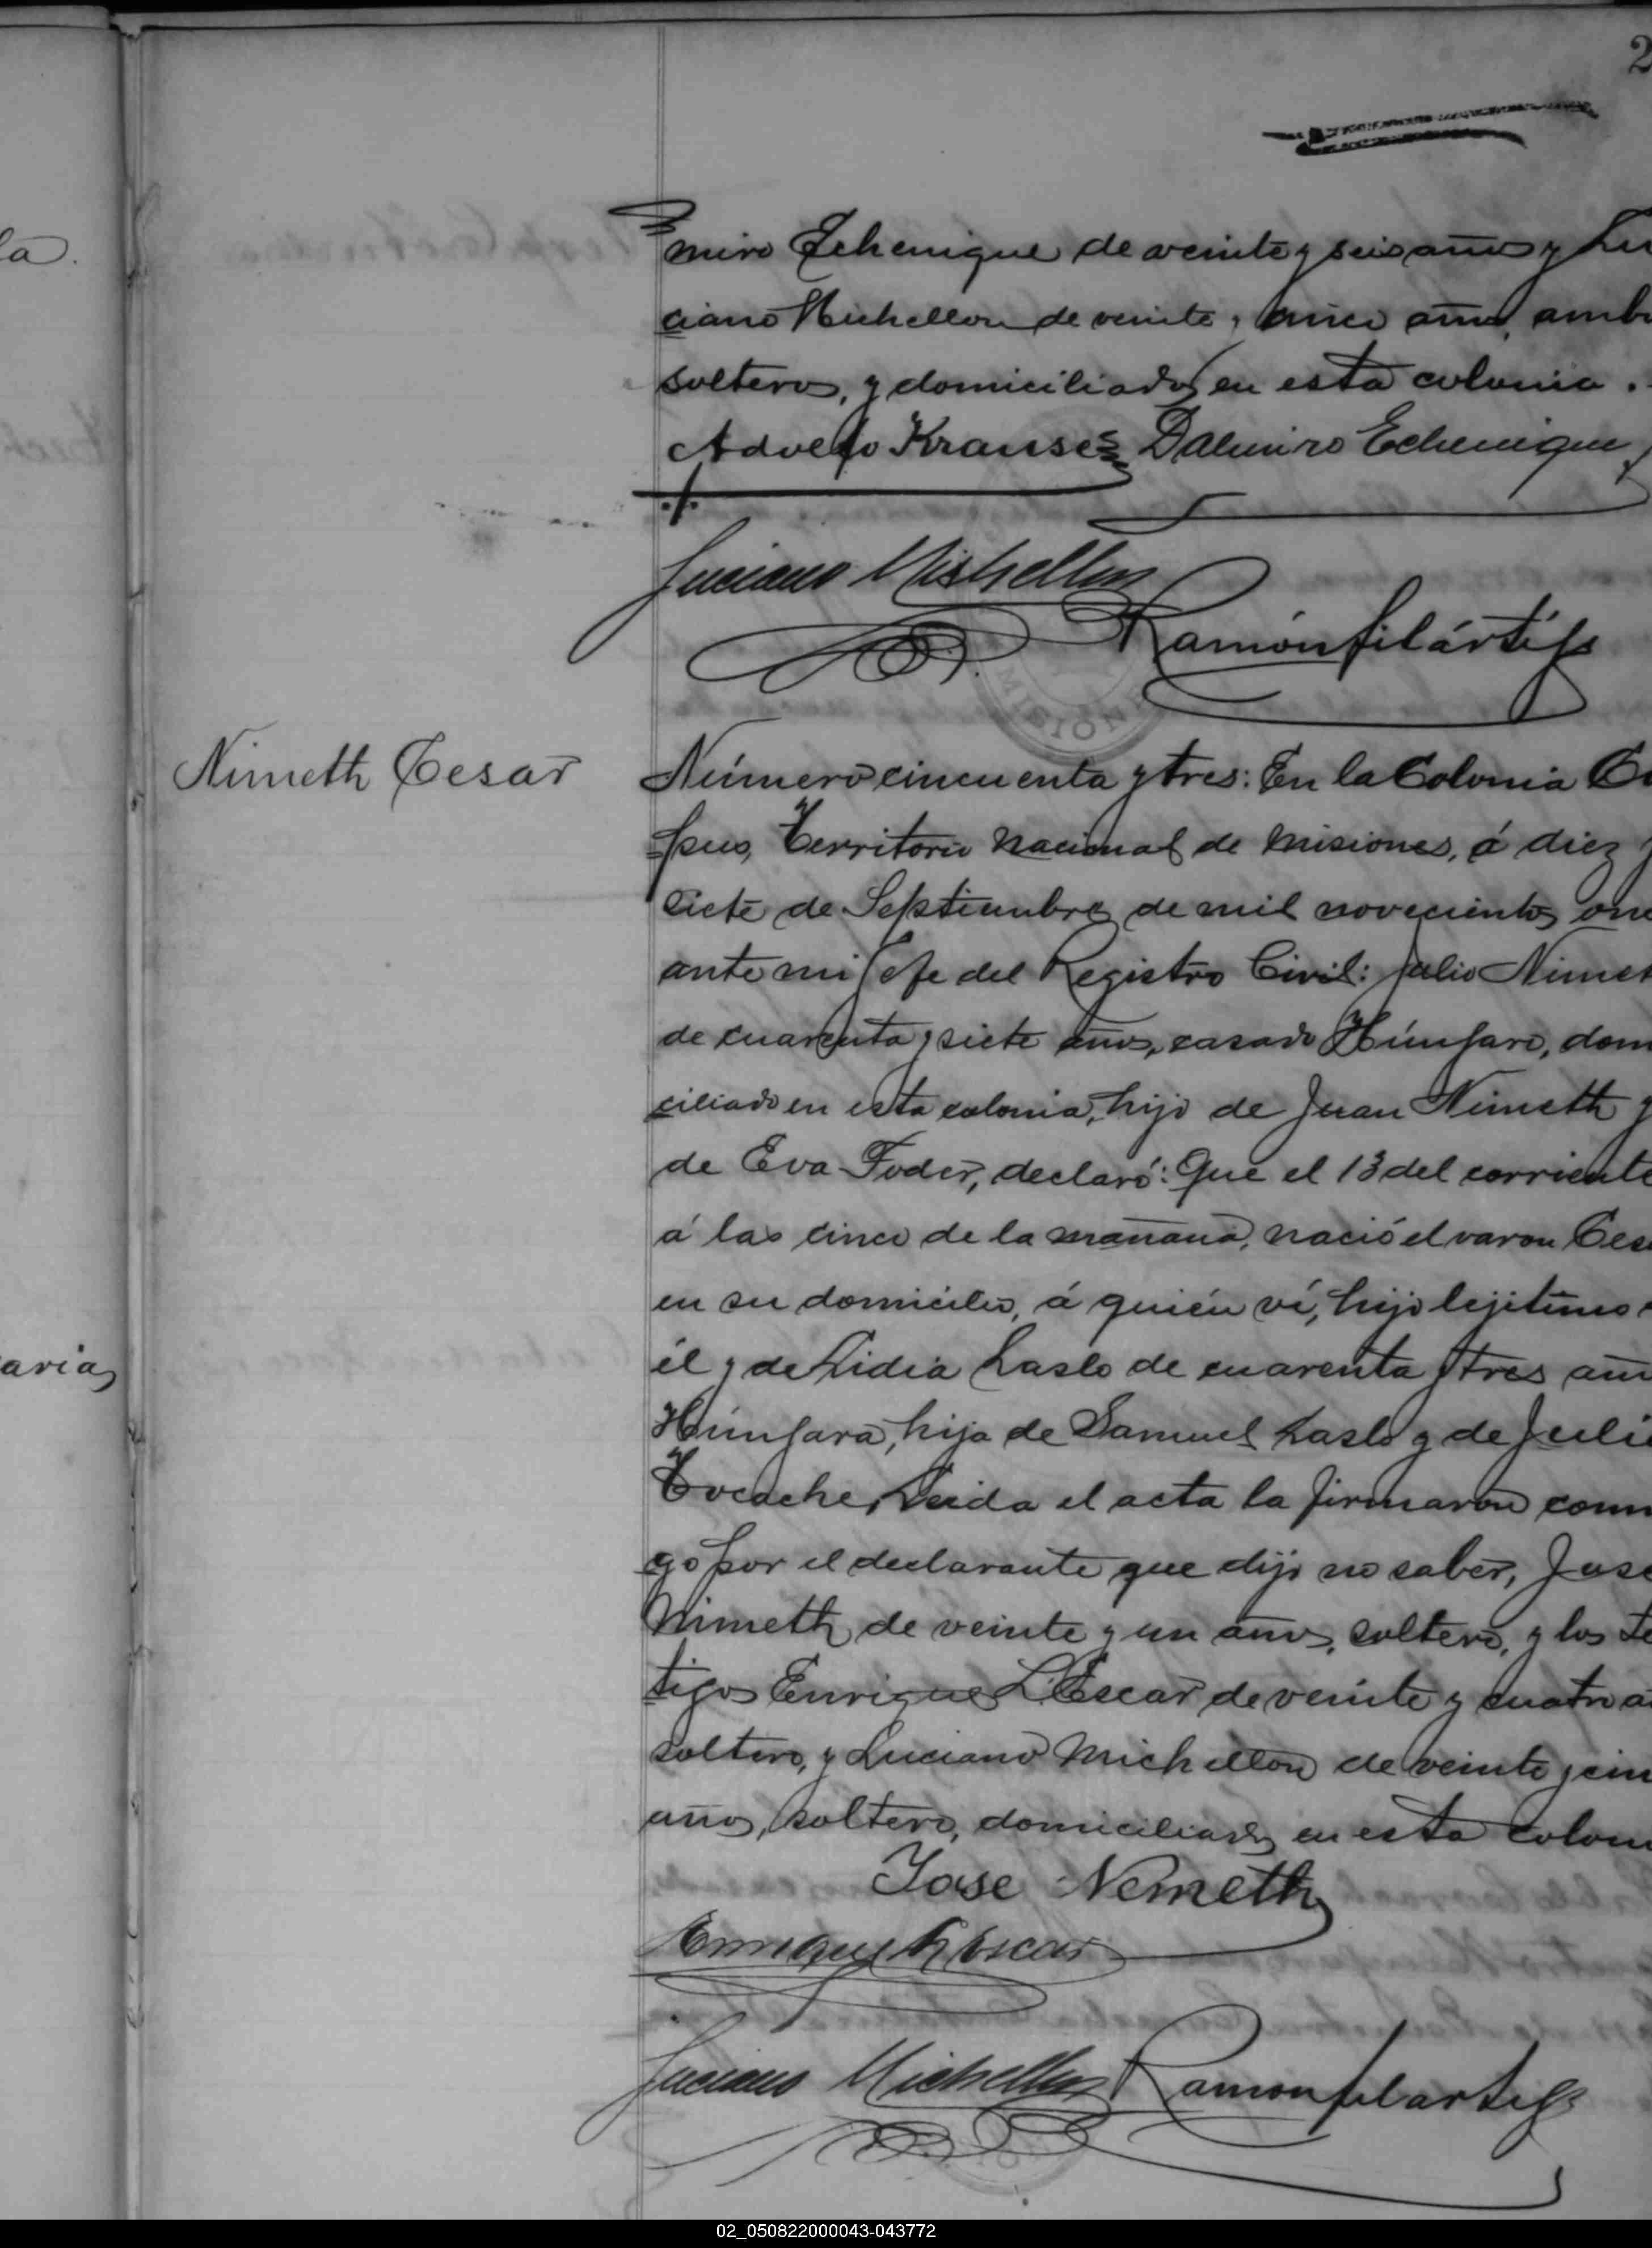 2
la.
miro Echenique de veinte y seis años y Lu
ciano Michellon de veinte y cinco años, amb
solteros, y domiciliados en esta colonia.
Adolfo Krause Dalmiro Echenique
Luciano Michellon
Ramón Filártiga
MISIONES
Nimeth Cesar
Número cincuenta y tres: En la Colonia Co
pus, Territorio Nacional de Misiones, á diez y
siete de Septiembre de mil novecientos on
ante mi Jefe del Registro Civil: Julio Nimet
de cuarenta y siete años, casado Húngaro, dom
ciliado en esta colonia, hijo de Juan Nimeth y
de Eva Foder, declaró: Que el 13 del corriente
á las cinco de la mañana, nació el varon Cesa
en su domicilio, á quién ví, hijo lejitimo
él y de Lidia Laslo de cuarenta y tres añ
aria
Húngara, hija de Samuel Laslo y de Juli
Leida el acta la firmaron conm
go por el declarante que dijo no saber, Jose
Nimeth de veinte y un años, soltero, y los te
tigos Enrique L. Escar de veinte y cuatro a
soltero, y Luciano Michellon de veinte y cin
años, soltero, domiciliados en esta colon
Jose Nemeth
Enrique L Escar
Luciano Michellon Ramon Filartiga
02_050822000043-043772